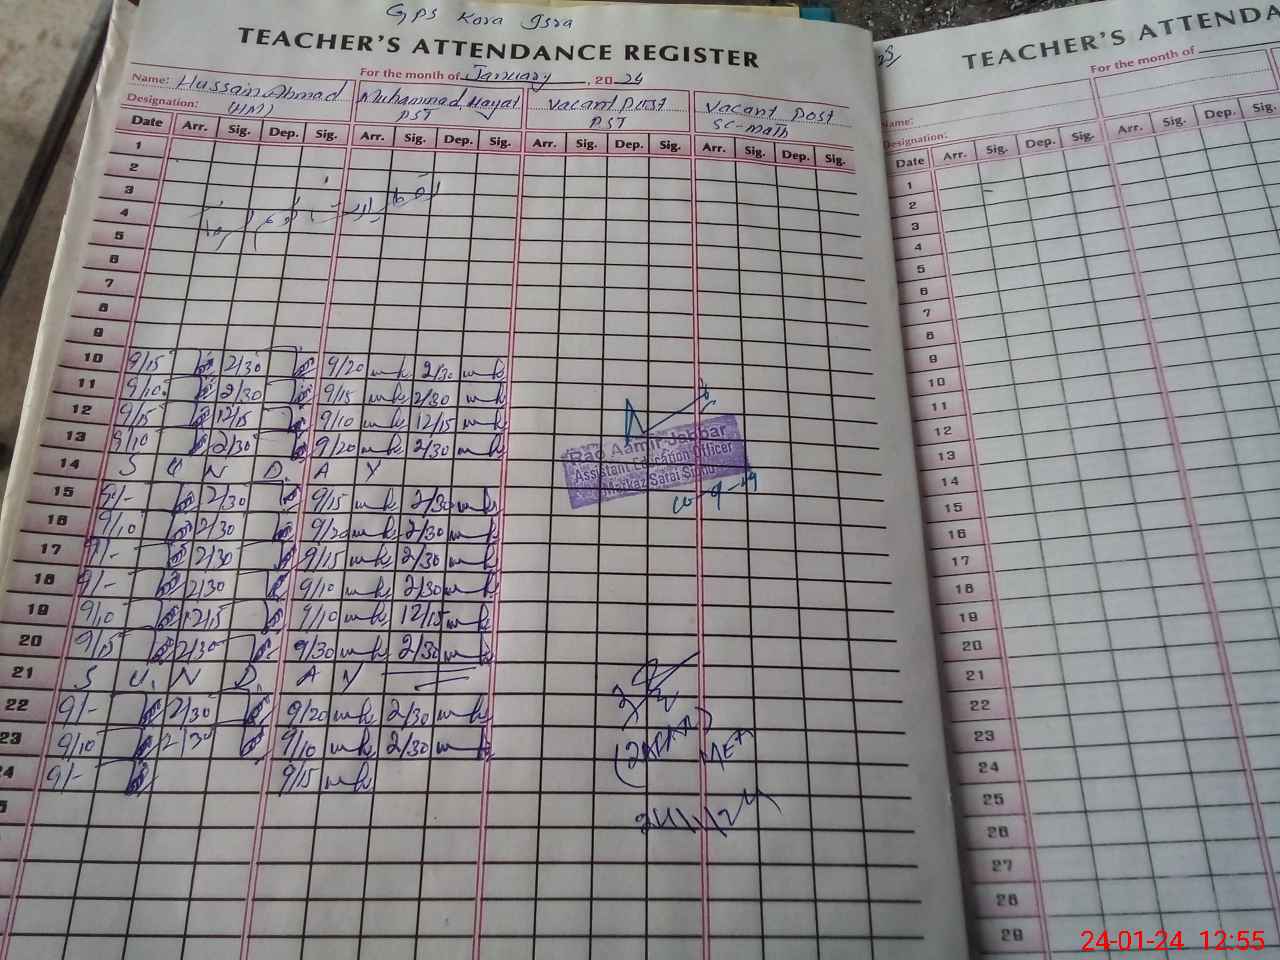 GPS Kora Isra
TEACHER'S ATTENDANCE REGISTER
For the month of January, 2024
Name: Hussain Ahmad Muhammad Hayat Vacant Post Vacant Post
Designation: (HM) PST PST SC-Math
Date Arr. Sig. Dep. Sig. Arr. Sig. Dep. Sig. Arr. Sig. Dep. Sig. Arr. Sig. Dep. Sig.
1
2
3
4
5
6
7
8
9
10 9/15 2/30 9/20 mh 2/30 mh
11 9/10 2/30 9/15 mh 2/30 mh
12 9/15 12/15 9/10 mh 12/15 mh
13 9/10 2/30 9/20 mh 2/30 mh
14 S U N D. A Y
15 9/- 2/30 9/15 mh 2/30 mh
16 9/10 2/30 9/20 mh 2/30 mh
17 9/- 2/30 9/15 mh 2/30 mh
18 9/- 2/30 9/10 mh 2/30 mh
19 9/10 12/15 9/10 mh 12/15 mh
20 9/15 2/30 9/30 mh 2/30 mh
21 S U. N D. A Y
22 9/- 2/30 9/20 mh 2/30 mh
23 9/10 2/30 9/10 mh 2/30 mh
24 9/- 9/15 mh
Rao Aamir Jabbar
Assistant Education Officer
Markaz Sarai Sidhu
TEACHER'S ATTENDA
For the month of
Name:
Designation:
Date Arr. Sig. Dep. Sig. Arr. Sig. Dep. Sig.
1
2
3
4
5
6
7
8
9
10
11
12
13
14
15
16
17
18
19
20
21
22
23
24
25
26
27
28
29
24-01-24 12:55